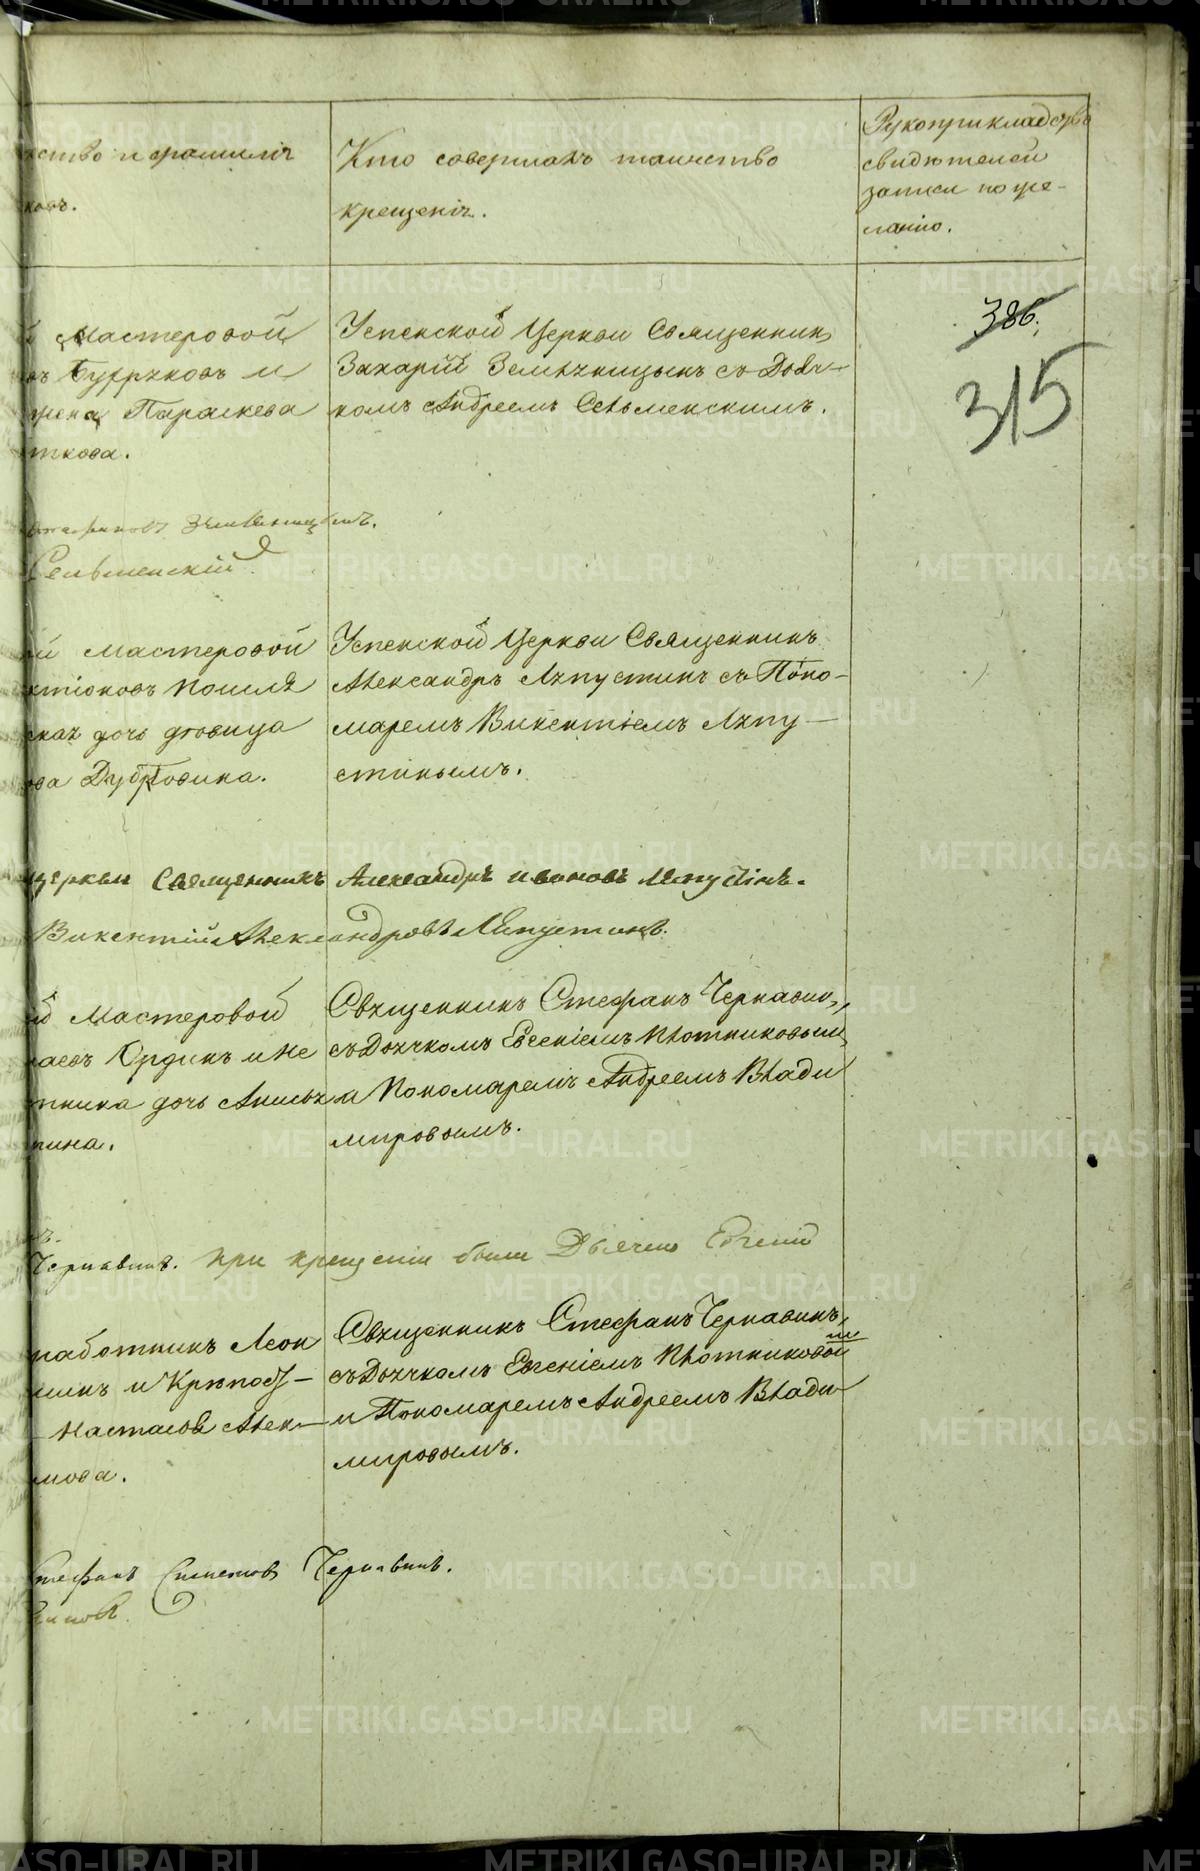 ство и фамилія
ковъ.
Кто совершалъ таинство
крещенія.
Рукоприкладство
свидѣтелей
записи по же-
ланію.
386.
315
й Мастеровой
въ Бурдуковъ и
жена Параскева
ткова.
Успенской Церкви Священникъ
Захарій Земляницынъ съ Дьяч-
комъ Андреемъ Сельменскимъ.
Земляницынъ.
Сельменскій
й Мастеровой
ктіоновъ
ская дочь дѣвица
ова Дубровина.
Успенской Церкви Священникъ
Александръ Ляпустинъ съ Поно-
маремъ Викентіемъ Ляпу-
стинымъ.
церкви Священникъ Александръ Ивановъ Ляпустинъ.
Викентій Александровъ Ляпустинъ.
й Мастеровой
Ординъ и Не
тника дочь Анисья
ина.
Священникъ Стефанъ Чернавинъ,
съ Дьячкомъ Евгеніемъ Плотниковымъ
и Пономаремъ Андреемъ Влади
мировымъ.
Чернавинъ. при крещеніи были Дьячекъ Евгеній
работникъ Леон
инъ и Крѣпост-
Настасья Алек-
мова.
Священникъ Стефанъ Чернавинъ,
съ Дьячкомъ Евгеніемъ Плотниковы
мъ
и Пономаремъ Андреемъ Влади-
мировымъ.
Стефанъ Симеоновъ Чернавинъ.
METRIKI.GASO-URAL.RU